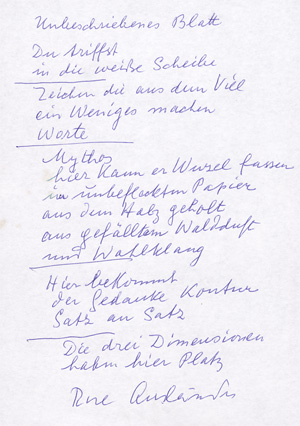 Unbeschriebenes Blatt
Du triffst
in die weiße Scheibe
Zeichen die aus dem Viel
ein Weniges machen
Worte
Mythos
hier kann er Wurzel fassen
im unbefleckten Papier
aus dem Holz geholt
aus gefälltem Waldduft
und Wahlklang
Hier bekommt
der Gedanke Kontur
Satz an Satz
Die drei Dimensionen
haben hier Platz
Rose Ausländer